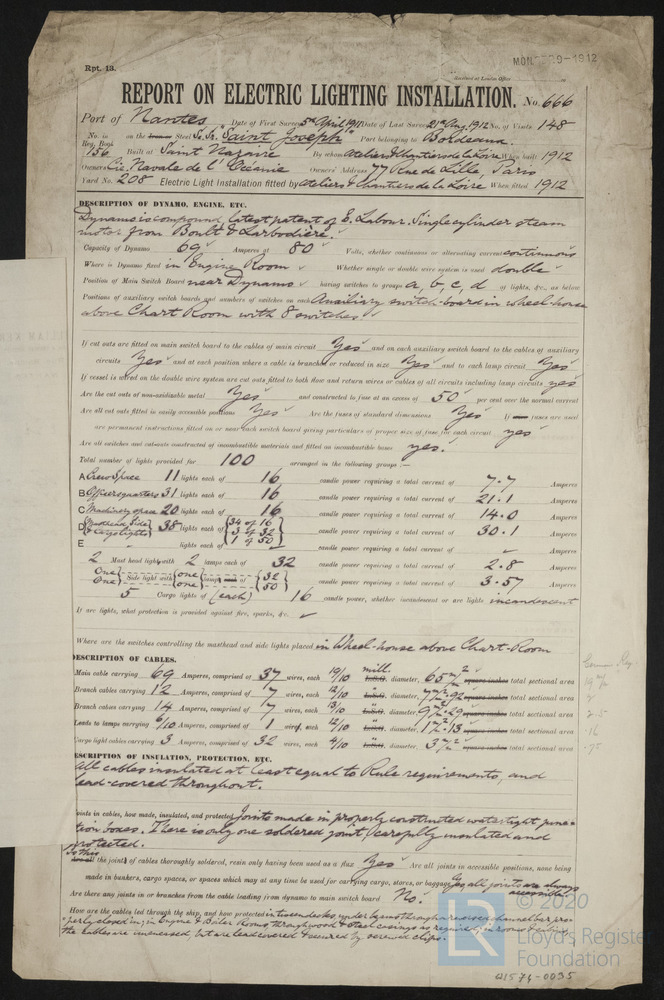 Rpt. 13.
MON 9-1912
Received at London Office
REPORT ON ELECTRIC LIGHTING INSTALLATION. No. 666
Port of Nantes Date of First Survey 5th April 1911 Date of Last Survey 21st Aug. 1912 No. of Visits 148
No. in Reg. Book on the Steel S. Sr. "Saint Joseph" Port belonging to Bordeaux
156 Built at Saint Nazaire By whom Ateliers & Chantiers de la Loire When built 1912
Owners Cie. Navale de l'Oceanie Owners' Address 77 Rue de Lille, Paris
Yard No. 208 Electric Light Installation fitted by Ateliers & Chantiers de la Loire When fitted 1912
DESCRIPTION OF DYNAMO, ENGINE, ETC.
Dynamo is compound, latest patent of E. Labour. Single cylinder steam
motor from Boult & Larbodière.
Capacity of Dynamo 69 Amperes at 80 Volts, whether continuous or alternating current continuous
Where is Dynamo fixed in Engine Room Whether single or double wire system is used double
Position of Main Switch Board near Dynamo having switches to groups a, b, c, d of lights, &c., as below
Positions of auxiliary switch boards and numbers of switches on each Auxiliary switch-board in wheel-house
above Chart Room with 8 switches
If cut outs are fitted on main switch board to the cables of main circuit Yes and on each auxiliary switch board to the cables of auxiliary
circuits Yes and at each position where a cable is branched or reduced in size Yes and to each lamp circuit Yes
If vessel is wired on the double wire system are cut outs fitted to both flow and return wires or cables of all circuits including lamp circuits yes
Are the cut outs of non-oxidizable metal Yes and constructed to fuse at an excess of 50 per cent over the normal current
Are all cut outs fitted in easily accessible positions Yes Are the fuses of standard dimensions Yes If fuses are used
are permanent instructions fitted on or near each switch board giving particulars of proper size of fuse for each circuit yes
Are all switches and cut-outs constructed of incombustible materials and fitted on incombustible bases yes.
Total number of lights provided for 100 arranged in the following groups :—
A Crew Space 11 lights each of 16 candle power requiring a total current of 7.7 Amperes
B Officers quarters 31 lights each of 16 candle power requiring a total current of 21.1 Amperes
C Machinery space 20 lights each of 16 candle power requiring a total current of 14.0 Amperes
D Masthead, Side & Cargo lights 38 lights each of {34 of 16 3 of 32 1 of 50} candle power requiring a total current of 30.1 Amperes
E lights each of candle power requiring a total current of Amperes
2 Mast head light with 2 lamps each of 32 candle power requiring a total current of 2.8 Amperes
One One Side light with one one lamp of {32 50} candle power requiring a total current of 3.57 Amperes
5 Cargo lights of (each) 16 candle power, whether incandescent or arc lights incandescent
If arc lights, what protection is provided against fire, sparks, &c.
Where are the switches controlling the masthead and side lights placed in Wheel-house above Chart-Room
DESCRIPTION OF CABLES.
Main cable carrying 69 Amperes, comprised of 37 wires, each 19/10 mill. diameter, 65 square inches total sectional area
Branch cables carrying 12 Amperes, comprised of 7 wires, each 12/10 diameter, 7.92 square inches total sectional area
Branch cables carrying 14 Amperes, comprised of 7 wires, each 13/10 diameter, 9.29 square inches total sectional area
Leads to lamps carrying 6/10 Amperes, comprised of 1 wires, each 12/10 diameter, 1.13 square inches total sectional area
Cargo light cables carrying 3 Amperes, comprised of 32 wires, each 4/10 diameter, 3 square inches total sectional area
DESCRIPTION OF INSULATION, PROTECTION, ETC.
All cables insulated at least equal to Rule requirements, and
lead-covered throughout.
Joints in cables, how made, insulated, and protected Joints made in properly constructed watertight junc-
tion boxes. There is only one soldered joint, carefully insulated and
protected.
Is this the joint of cables thoroughly soldered, resin only having been used as a flux Yes Are all joints in accessible positions, none being
made in bunkers, cargo spaces, or spaces which may at any time be used for carrying cargo, stores, or baggage Yes all joints are always accessible.
Are there any joints in or branches from the cable leading from dynamo to main switch board No.
How are the cables led through the ship, and how protected in 'tweendecks, under beams through a reversed channel bar pro-
perly closed in; in Engine & Boiler Rooms through wood & steel casings as required; in rooms & cabins
the cables are uncovered, but are lead covered & secured by screwed clips.
© 2020
LR Lloyd's Register
Foundation
0157